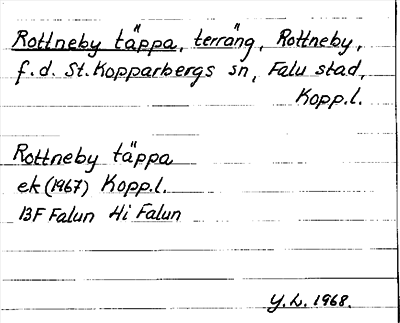 Rottneby täppa, terräng, Rottneby,
f.d. St. Kopparbergs sn, Falu stad,
Kopp.l.
Rottneby täppa
ek (1967) Kopp.l.
13F Falun 4i Falun
Y.L. 1968.